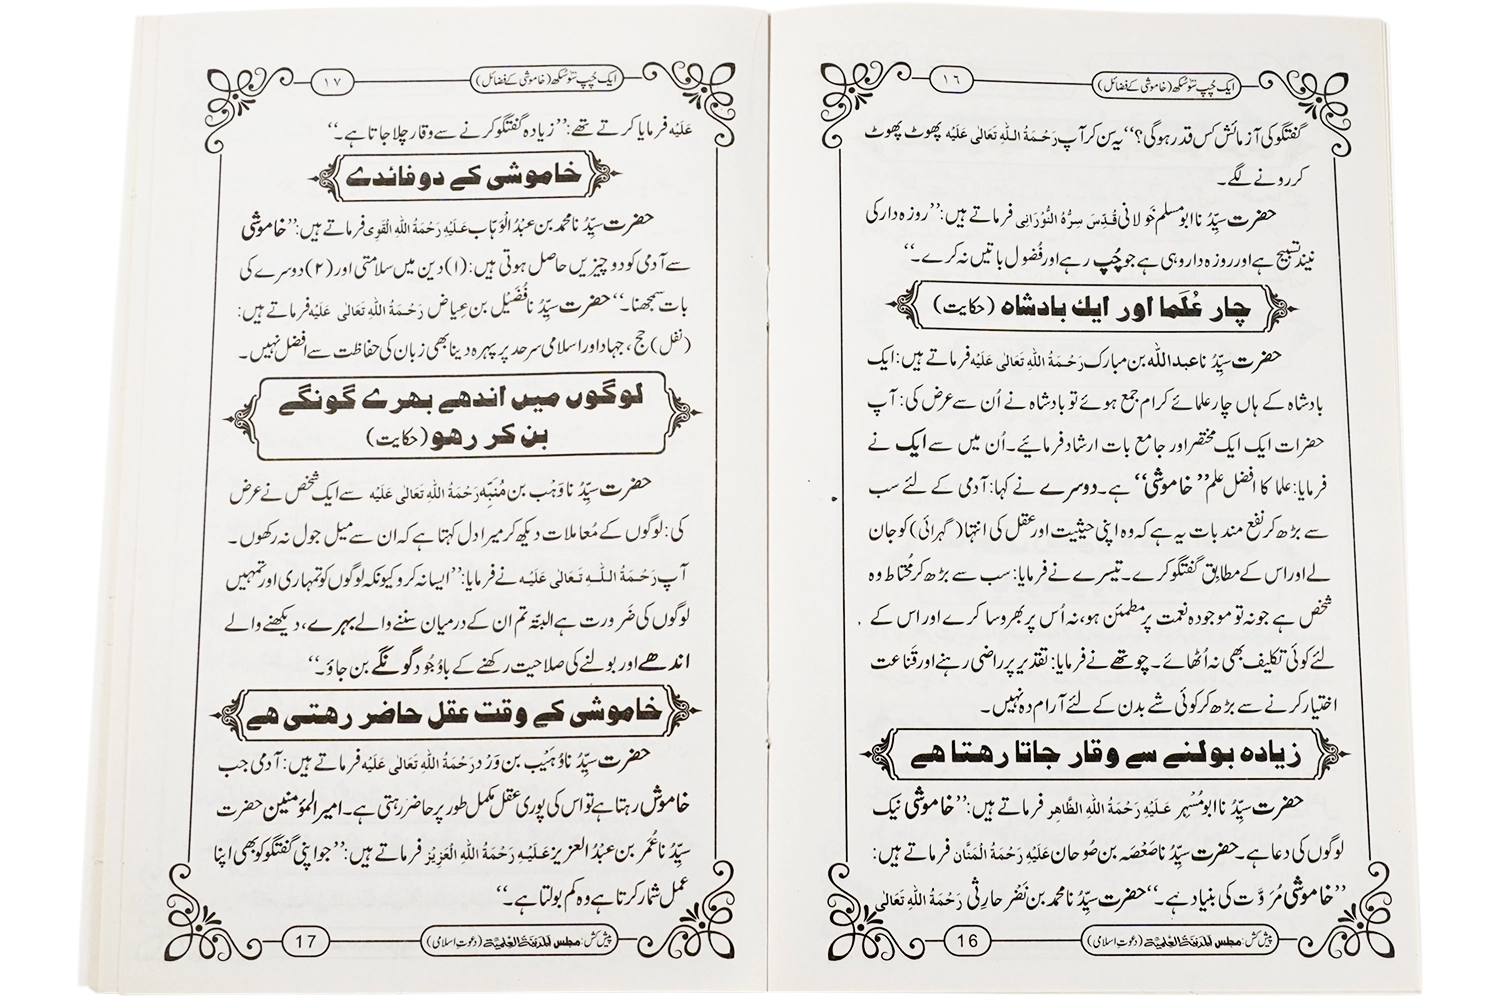 ایک چُپ سَوسُکھ (خاموشی کے فضائل)
۱۶
گفتگو کی آزمائش کس قدر ہوگی؟‘‘ یہ سن کر آپ رَحْمَۃُ اللہِ تَعَالٰی عَلَیْہ پھوٹ پھوٹ
کر رونے لگے۔
حضرت سیِّدُنا ابو مسلم خَولانی قُدِّسَ سِرُّہُ النُّوْرَانِی فرماتے ہیں: ’’روزہ دار کی
نیند تسبیح ہے اور روزہ دار وہی ہے جو چُپ رہے اور فُضول باتیں نہ کرے۔‘‘
چار عُلَما اور ایک بادشاہ (حکایت)
حضرت سیِّدُنا عبد اللہ بن مبارک رَحْمَۃُ اللہِ تَعَالٰی عَلَیْہ فرماتے ہیں: ایک
بادشاہ کے ہاں چار علمائے کرام جمع ہوئے تو بادشاہ نے اُن سے عرض کی: آپ
حضرات ایک ایک مختصر اور جامع بات ارشاد فرمائیے۔ اُن میں سے ایک نے
فرمایا: علما کا افضل علم ’’خاموشی‘‘ ہے۔ دوسرے نے کہا: آدمی کے لئے سب
سے بڑھ کر نفع مند بات یہ ہے کہ وہ اپنی حیثیت اور عقل کی انتہا (گہرائی) کو جان
لے اور اس کے مطابق گفتگو کرے۔ تیسرے نے فرمایا: سب سے بڑھ کر مُحتاط وہ
شخص ہے جو نہ تو موجودہ نعمت پر مطمئن ہو، نہ اُس پر بھروسا کرے اور اس کے
لئے کوئی تکلیف بھی نہ اُٹھائے۔ چوتھے نے فرمایا: تقدیر پر راضی رہنے اور قَناعت
اختیار کرنے سے بڑھ کر کوئی شے بدن کے لئے آرام دہ نہیں۔
زیادہ بولنے سے وقار جاتا رھتا ھے
حضرت سیِّدُنا ابو مُسْہِر عَلَیْہِ رَحْمَۃُ اللہِ الظَّاہِر فرماتے ہیں: ’’خاموشی نیک
لوگوں کی دعا ہے۔ حضرت سیِّدُنا صَعْصَعہ بن صُوحان عَلَیْہِ رَحْمَۃُ الْمَنَّان فرماتے ہیں:
’’خاموشی مُرَوَّت کی بنیاد ہے۔‘‘ حضرت سیِّدُنا محمد بن نَضْر حارِثی رَحْمَۃُ اللہِ تَعَالٰی
پیش کش: مجلس المدینۃ العلمیۃ (دعوتِ اسلامی)
16
ایک چُپ سَوسُکھ (خاموشی کے فضائل)
۱۷
عَلَیْہ فرمایا کرتے تھے: ’’زیادہ گفتگو کرنے سے وقار چلا جاتا ہے۔‘‘
خاموشی کے دو فائدے
حضرت سیِّدُنا محمد بن عَبْدُ الْوَہَّاب عَلَیْہِ رَحْمَۃُ اللہِ الْقَوِی فرماتے ہیں: ’’خاموشی
سے آدمی کو دو چیزیں حاصل ہوتی ہیں: (۱) دین میں سلامتی اور (۲) دوسرے کی
بات سمجھنا۔‘‘ حضرت سیِّدُنا فُضَیْل بن عِیاض رَحْمَۃُ اللہِ تَعَالٰی عَلَیْہ فرماتے ہیں:
(نفل) حج، جہاد اور اسلامی سرحد پر پہرہ دینا بھی زبان کی حفاظت سے افضل نہیں۔
لوگوں میں اندھے بھرے گونگے
بن کر رھو (حکایت)
حضرت سیِّدُنا وَہْب بن مُنَبِّہ رَحْمَۃُ اللہِ تَعَالٰی عَلَیْہ سے ایک شخص نے عرض
کی: لوگوں کے مُعاملات دیکھ کر میرا دل کہتا ہے کہ ان سے میل جول نہ رکھوں۔
آپ رَحْمَۃُ اللہِ تَعَالٰی عَلَیْہ نے فرمایا: ’’ایسا نہ کرو کیونکہ لوگوں کو تمہاری اور تمہیں
لوگوں کی ضَرورت ہے البتّہ تم ان کے درمیان سننے والے بہرے، دیکھنے والے
اندھے اور بولنے کی صلاحیت رکھنے کے باوُجُود گونگے بن جاؤ۔‘‘
خاموشی کے وقت عقل حاضر رھتی ھے
حضرت سیِّدُنا وُہَیْب بن وَرْد رَحْمَۃُ اللہِ تَعَالٰی عَلَیْہ فرماتے ہیں: آدمی جب
خاموش رہتا ہے تو اس کی پوری عقل مکمل طور پر حاضر رہتی ہے۔ امیر المؤمنین حضرت
سیِّدُنا عُمَر بن عبْدُ العزیز عَلَیْہِ رَحْمَۃُ اللہِ الْعَزِیْز فرماتے ہیں: ’’جو اپنی گفتگو کو بھی اپنا
عمل شمار کرتا ہے وہ کم بولتا ہے۔‘‘
پیش کش: مجلس المدینۃ العلمیۃ (دعوتِ اسلامی)
17